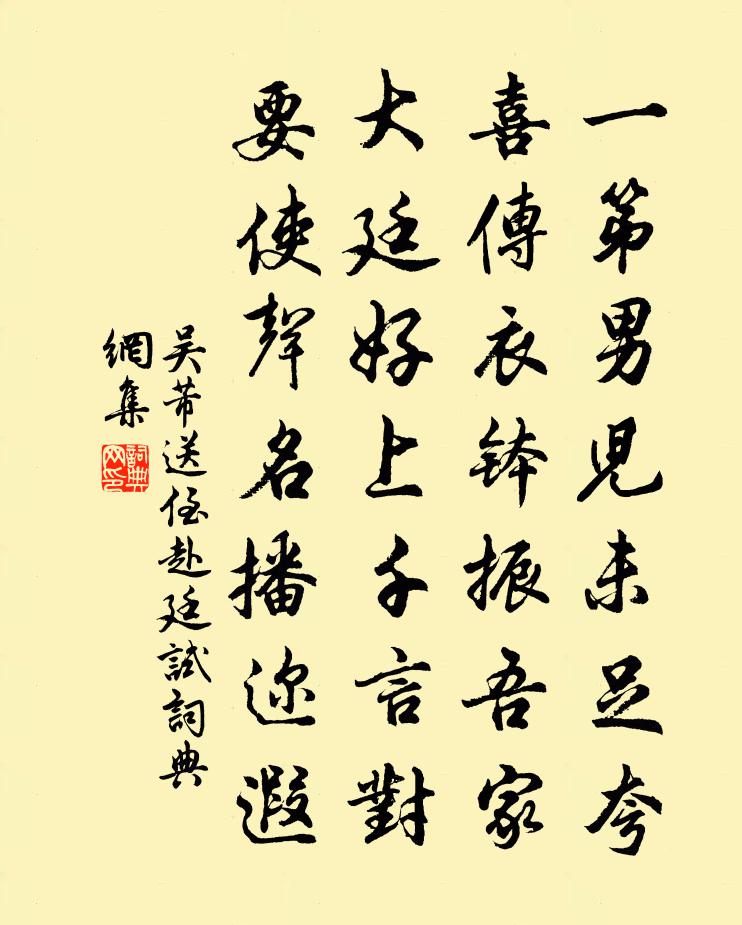 一第男児未足夸
喜傳衣鉢振吾家
大廷好上千言對
要使聲名播迩遐
吴芾送侄赴廷試詞典
網集
詞典網印